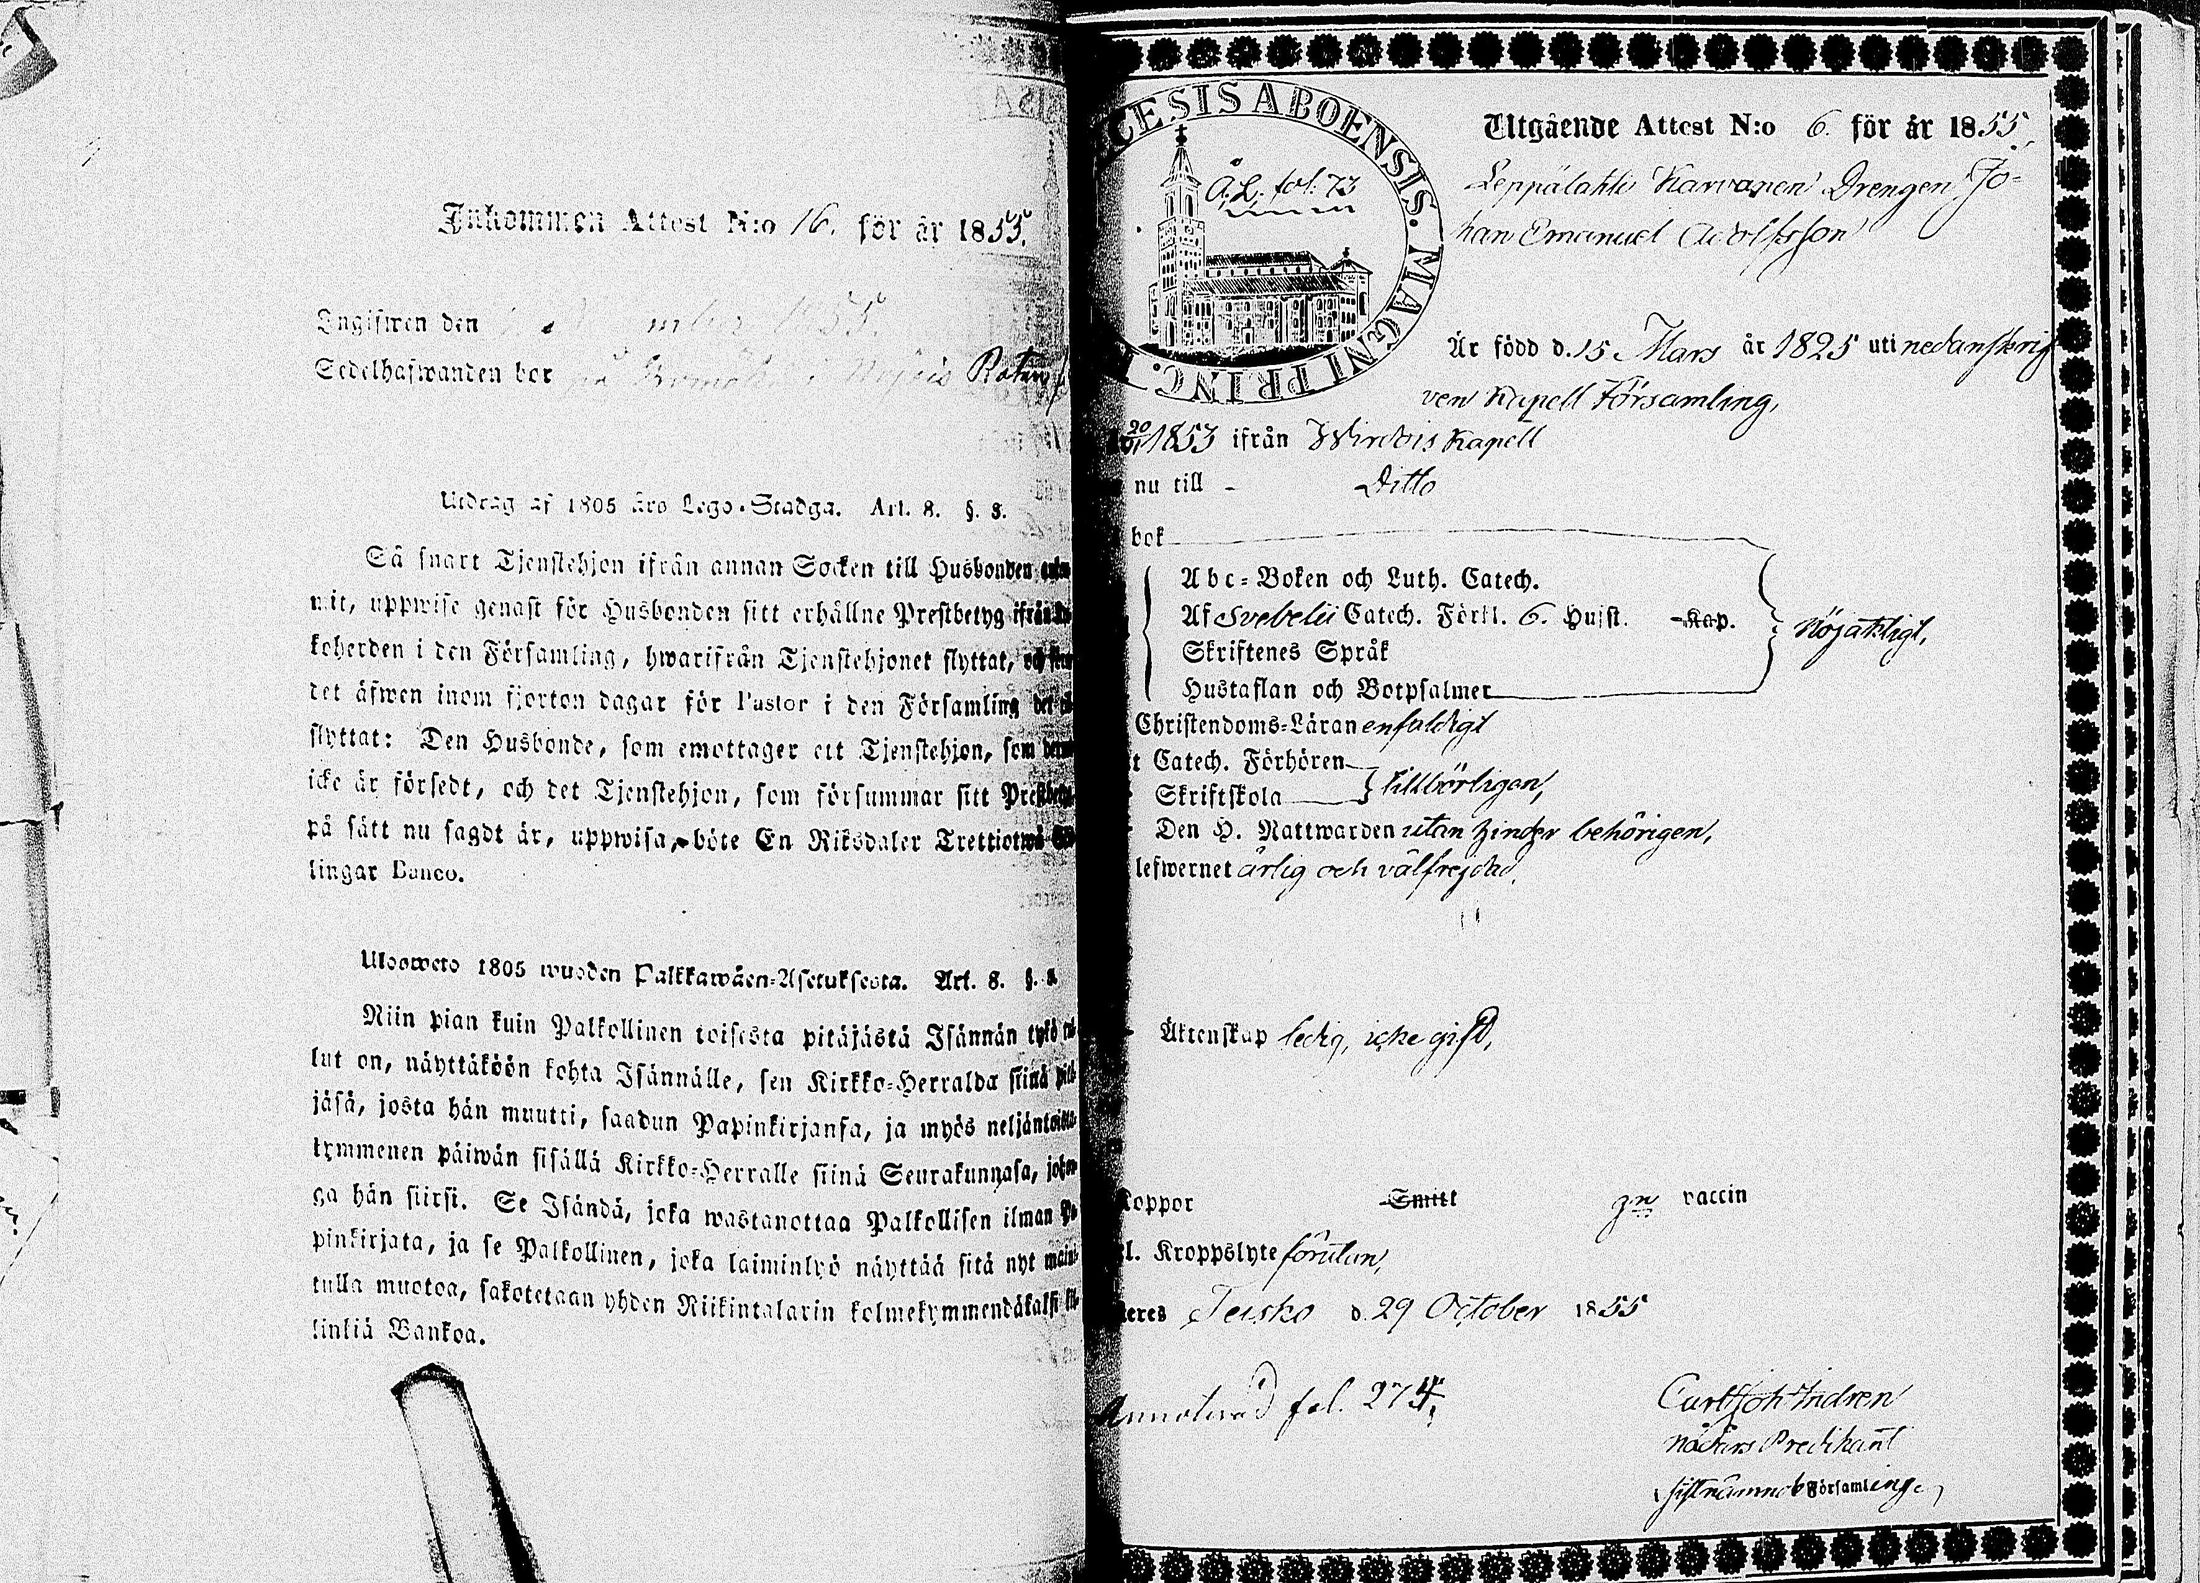 Inkommen Attest N:o 16. för år 1855.
Ingifwen den 1855.
Sedelhafwanden bor på
Utdrag af 1805 års Lego-Stadga. Art. 8. §. 8.
Så snart Tjenstehjon ifrån annan Socken till Husbonden
mit, uppwise genast för Husbonden sitt erhållne Prestbetyg ifrån
koherden i den Församling, hwarifrån Tjenstehjonet flyttat, och
det äfwen inom fjorton dagar för Pastor i den Församling det
flyttat: Den Husbonde, som emottager ett Tjenstehjon, som
icke är försedt, och det Tjenstehjon, som försummar sitt
på sätt nu sagdt är, uppwisa, böte En Riksdaler Trettiotwå
lingar Banco.
Ulosweto 1805 wuoden Palkkawäen-Asetuksesta. Art. 8. §. 8.
Niin pian kuin Palkollinen toisesta pitäjästä Isännän tykö
lut on, näyttäköön kohta Isännälle, sen Kirkko-Herralda siinä
jäsä, josta hän muutti, saadun Papinkirjansa, ja myös
kymmenen päiwän sisällä Kirkko-Herralle siinä Seurakunnasa,
ga hän siirsi. Se Isändä, joka wastanottaa Palkollisen ilman
pinkirjata, ja se Palkollinen, joka laiminlyö näyttää sitä nyt
tulla muotoa, sakotetaan yhden Riikintalarin kolmekymmendäkaksi
linkiä Bankoa.
CESIS ABOENSIS. MAGNI PRINC.
Å. L. fol: 73
Utgående Attest N:o 6. för år 1855.
Leppälahti Karvanen Drengen Jo-
han Emanuel Adolfsson
Är född d. 15 Mars år 1825 uti nedanskrif
ven Kapell Församling,
1853 ifrån Wirdois Kapell
nu till - Ditto
bok
Abc-Boken och Luth. Catech.
Af Svebelii Catech. Förkl. 6. Hufst. Kap.
Nöjaktligt,
Skriftenes Språk
Hustaflan och Botpsalmer
Christendoms-Läran enfaldigt
Catech. Förhören
tillbörligen,
Skriftskola
Den H. Nattwarden utan hinder behörigen,
lefwernet ärlig och välfrejdad.
Äktenskap ledig, icke gift,
koppor Smitt vaccin
Kroppslyte förutan,
Teisko d. 29 October 1855
Annoterad fol. 274.
Carl Joh Indren
Nådårs Predikant
sistnämnde Församling.